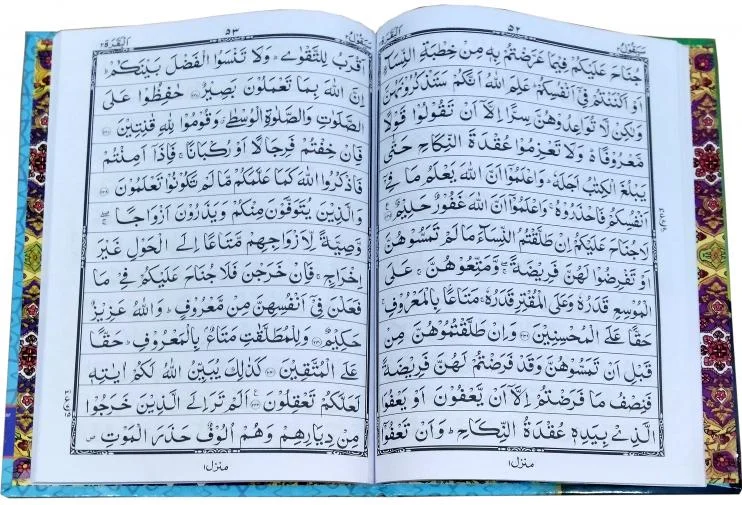 البقرة ٢
٥٢
سيقول ٢
جُنَاحَ عَلَيْكُمْ فِيْمَا عَرَّضْتُمْ بِهٖ مِنْ خِطْبَةِ النِّسَآءِ
اَوْ اَكْنَنْتُمْ فِيْٓ اَنْفُسِكُمْ ؕ عَلِمَ اللّٰهُ اَنَّكُمْ سَتَذْكُرُوْنَهُنَّ
وَلٰكِنْ لَّا تُوَاعِدُوْهُنَّ سِرًّا اِلَّآ اَنْ تَقُوْلُوْا قَوْلًا
مَّعْرُوْفًا ؕ وَلَا تَعْزِمُوْا عُقْدَةَ النِّكَاحِ حَتّٰى
يَبْلُغَ الْكِتٰبُ اَجَلَهٗ ؕ وَاعْلَمُوْٓا اَنَّ اللّٰهَ يَعْلَمُ مَا فِيْٓ
اَنْفُسِكُمْ فَاحْذَرُوْهُ ۚ وَاعْلَمُوْٓا اَنَّ اللّٰهَ غَفُوْرٌ حَلِيْمٌ
لَا جُنَاحَ عَلَيْكُمْ اِنْ طَلَّقْتُمُ النِّسَآءَ مَا لَمْ تَمَسُّوْهُنَّ
اَوْ تَفْرِضُوْا لَهُنَّ فَرِيْضَةً ۖۚ وَّمَتِّعُوْهُنَّ ۚ عَلَى
الْمُوْسِعِ قَدَرُهٗ وَعَلَى الْمُقْتِرِ قَدَرُهٗ ۚ مَتَاعًا ۢ بِالْمَعْرُوْفِ ۚ
حَقًّا عَلَى الْمُحْسِنِيْنَ ۝ وَاِنْ طَلَّقْتُمُوْهُنَّ مِنْ
قَبْلِ اَنْ تَمَسُّوْهُنَّ وَقَدْ فَرَضْتُمْ لَهُنَّ فَرِيْضَةً
فَنِصْفُ مَا فَرَضْتُمْ اِلَّآ اَنْ يَّعْفُوْنَ اَوْ يَعْفُوَا
الَّذِيْ بِيَدِهٖ عُقْدَةُ النِّكَاحِ ؕ وَاَنْ تَعْفُوْٓا
منزل ١
البقرة ٢
٥٣
سيقول ٢
اَقْرَبُ لِلتَّقْوٰى ؕ وَلَا تَنْسَوُا الْفَضْلَ بَيْنَكُمْ ؕ
اِنَّ اللّٰهَ بِمَا تَعْمَلُوْنَ بَصِيْرٌ ۝ حٰفِظُوْا عَلَى
الصَّلَوٰتِ وَالصَّلٰوةِ الْوُسْطٰى ۗ وَقُوْمُوْا لِلّٰهِ قٰنِتِيْنَ ۝
فَاِنْ خِفْتُمْ فَرِجَالًا اَوْ رُكْبَانًا ۚ فَاِذَآ اَمِنْتُمْ
فَاذْكُرُوا اللّٰهَ كَمَا عَلَّمَكُمْ مَّا لَمْ تَكُوْنُوْا تَعْلَمُوْنَ ۝
وَالَّذِيْنَ يُتَوَفَّوْنَ مِنْكُمْ وَيَذَرُوْنَ اَزْوَاجًا ۖۚ
وَّصِيَّةً لِّاَزْوَاجِهِمْ مَّتَاعًا اِلَى الْحَوْلِ غَيْرَ
اِخْرَاجٍ ۚ فَاِنْ خَرَجْنَ فَلَا جُنَاحَ عَلَيْكُمْ فِيْ مَا
فَعَلْنَ فِيْٓ اَنْفُسِهِنَّ مِنْ مَّعْرُوْفٍ ؕ وَاللّٰهُ عَزِيْزٌ
حَكِيْمٌ ۝ وَلِلْمُطَلَّقٰتِ مَتَاعٌ ۢ بِالْمَعْرُوْفِ ؕ حَقًّا
عَلَى الْمُتَّقِيْنَ ۝ كَذٰلِكَ يُبَيِّنُ اللّٰهُ لَكُمْ اٰيٰتِهٖ
لَعَلَّكُمْ تَعْقِلُوْنَ ۝ اَلَمْ تَرَ اِلَى الَّذِيْنَ خَرَجُوْا
مِنْ دِيَارِهِمْ وَهُمْ اُلُوْفٌ حَذَرَ الْمَوْتِ ۪
منزل ١